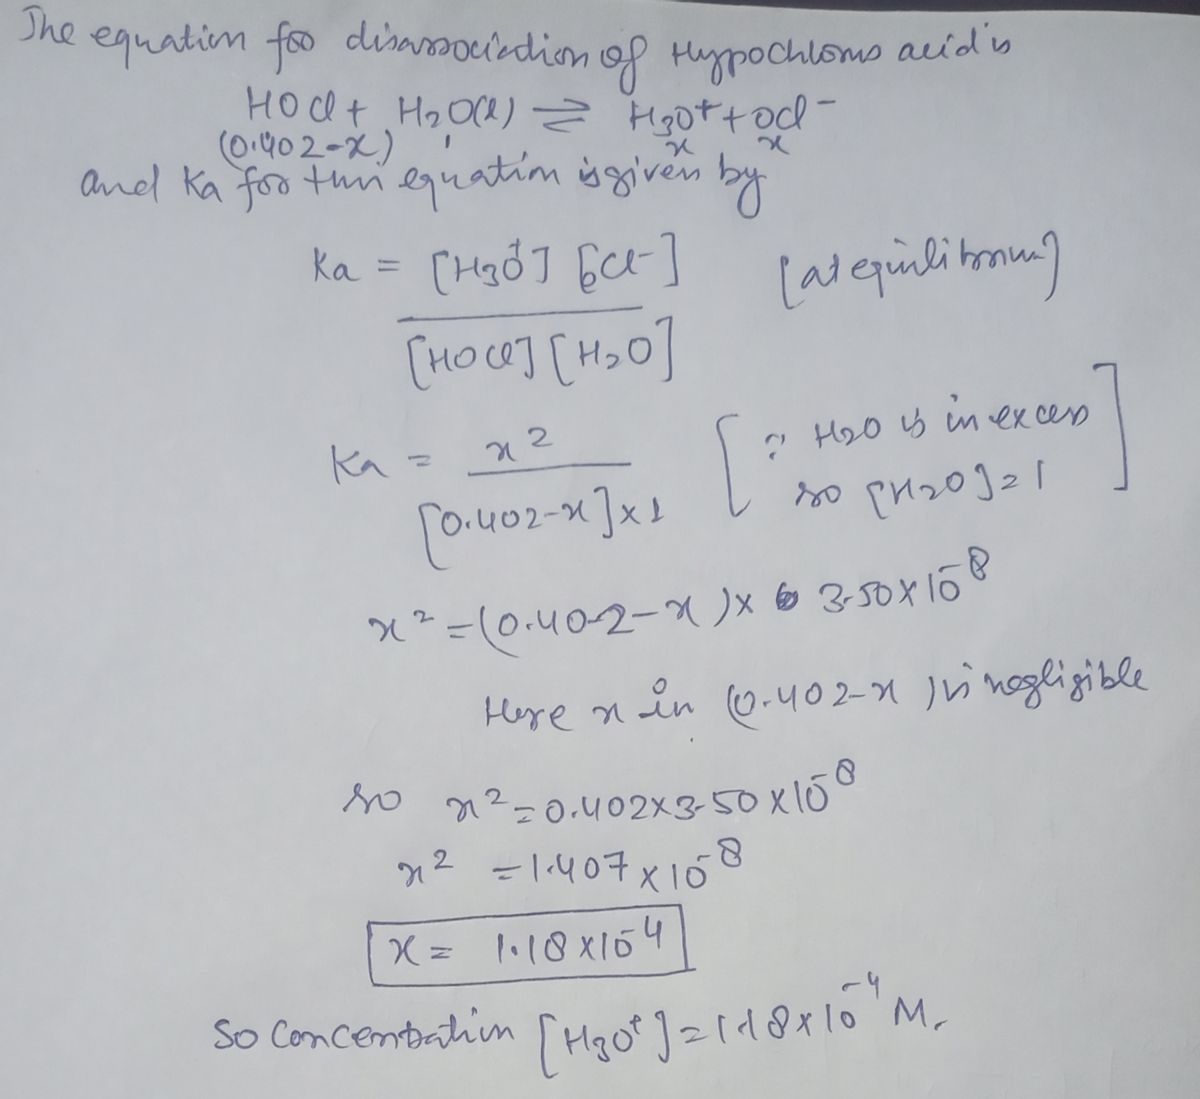 The equation foo disassociation of Hypochloms acid is
HOCl + H2O(l) ⇌ H3O+ + OCl-
(0.402-x) x x
and Ka for this equation is given by
Ka = [H3O+] [OCl-] [at equilibrium]
[HOCl] [H2O]
Ka = x2 [∵ H2O is in excess
[0.402-x]x1 so [H2O]=1]
x2 = (0.402-x)x 3.50x10-8
Here x in (0.402-x) is negligible
so x2 = 0.402x3.50x10-8
x2 = 1.407x10-8
x = 1.18x10-4
So Concentration [H3O+] = 1.18x10-4 M.